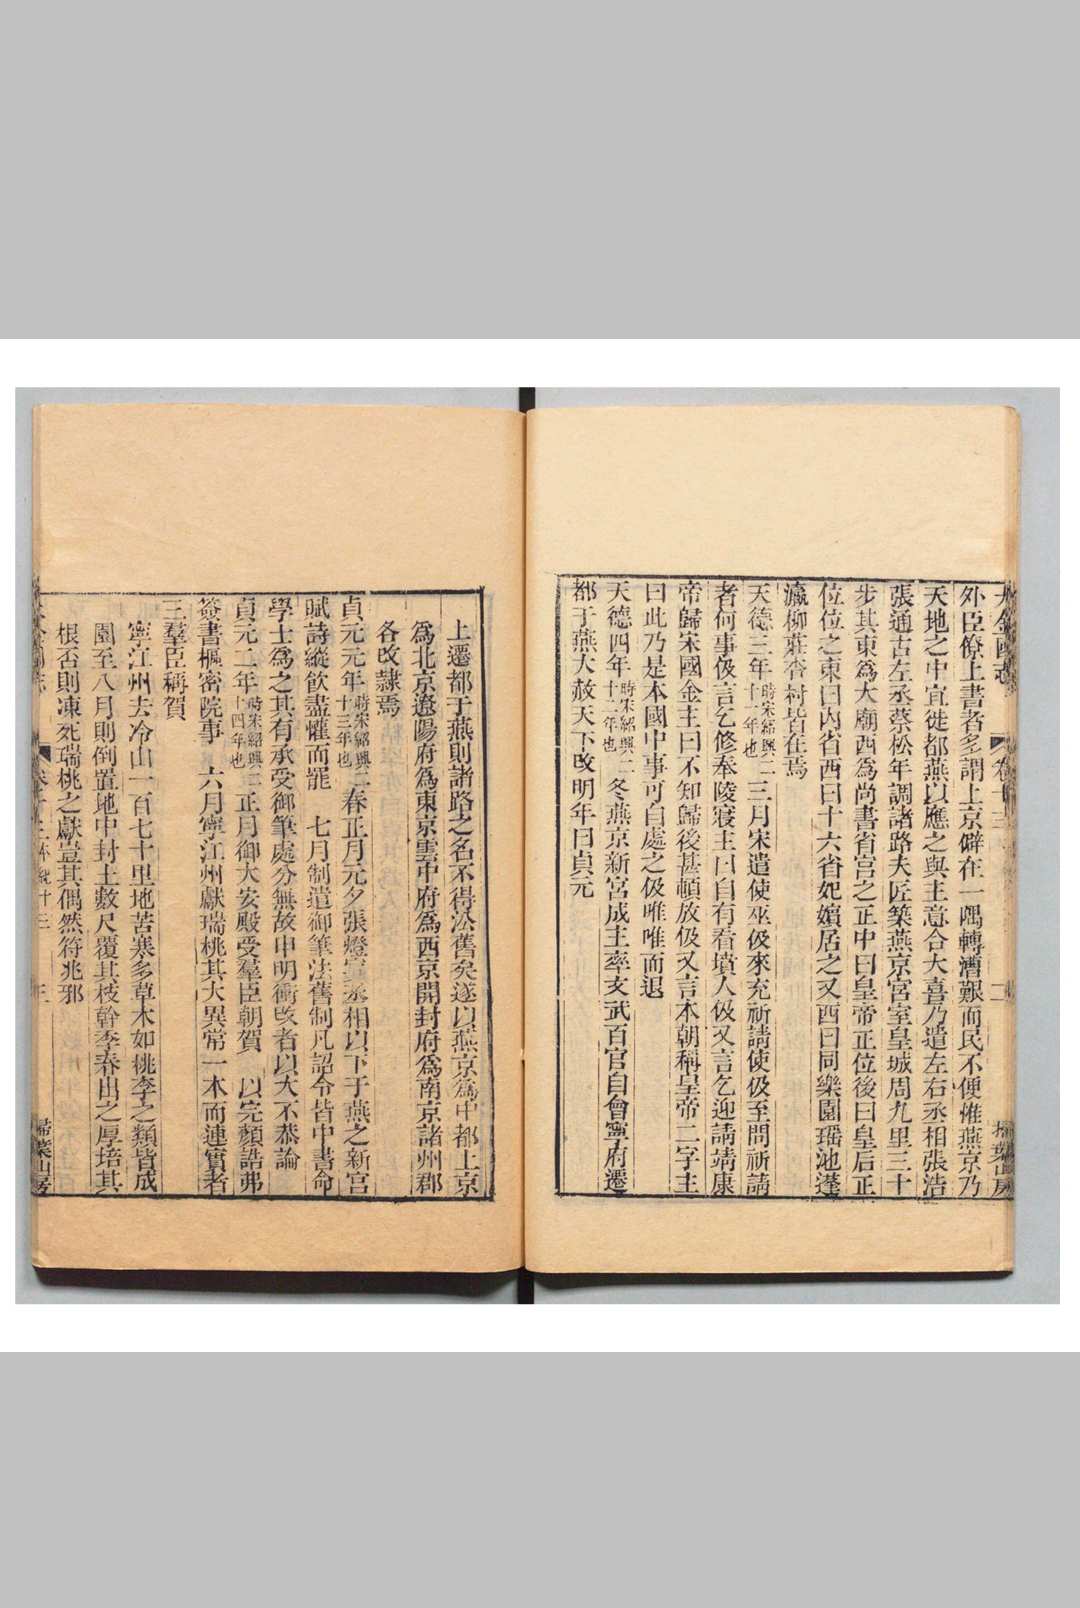 大金國志 卷十三 二 掃葉山房
外臣僚上書者多謂上京僻在一隅轉漕艱而民不便惟燕京乃
天地之中宜徙都燕以應之與主意合大喜乃遣左右丞相張浩
張通古左丞蔡松年調諸路夫匠築燕京宮室皇城周九里三十
步其東爲太廟西爲尚書省宫之正中曰皇帝正位後曰皇后正
位位之東曰内省西曰十六省妃嬪居之又西曰同樂園瑶池蓬
瀛柳莊杏村皆在焉
天德三年時宋紹興二十一年也三月宋遣使巫伋來充祈請使伋至問祈請
者何事伋言乞修奉陵寢主曰自有看墳人伋又言乞迎請靖康
帝歸宋國金主曰不知歸後甚頓放伋又言本朝稱皇帝二字主
曰此乃是本國中事可自處之伋唯唯而退
天德四年時宋紹興二十二年也冬燕京新宮成主率文武百官自會寧府遷
都于燕大赦天下改明年曰貞元
上遷都于燕則諸路之名不得㳂舊矣遂以燕京為中都上京
爲北京遼陽府爲東京雲中府爲西京開封府爲南京諸州郡
各改隸焉
貞元元年時宋紹興二十三年也春正月元夕張燈宴丞相以下于燕之新宮
賦詩縱飲盡懽而罷 七月制遣御筆法舊制凡詔令皆中書命
學士爲之其有承受御筆處分無故申明衝改者以大不恭論
貞元二年時宋紹興二十四年也正月御大安殿受羣臣朝賀 以完顏誥弗
簽書樞密院事 六月寧江州獻瑞桃其大異常一本而連實者
三羣臣稱賀
寧江州去冷山一百七十里地苦寒多草木如桃李之類皆成
園至八月則倒置地中封土數尺覆其枝幹季春出之厚培其
根否則凍死瑞桃之獻豈其偶然符兆邪
大金國志 卷十三 本紀十三 三 掃葉山房